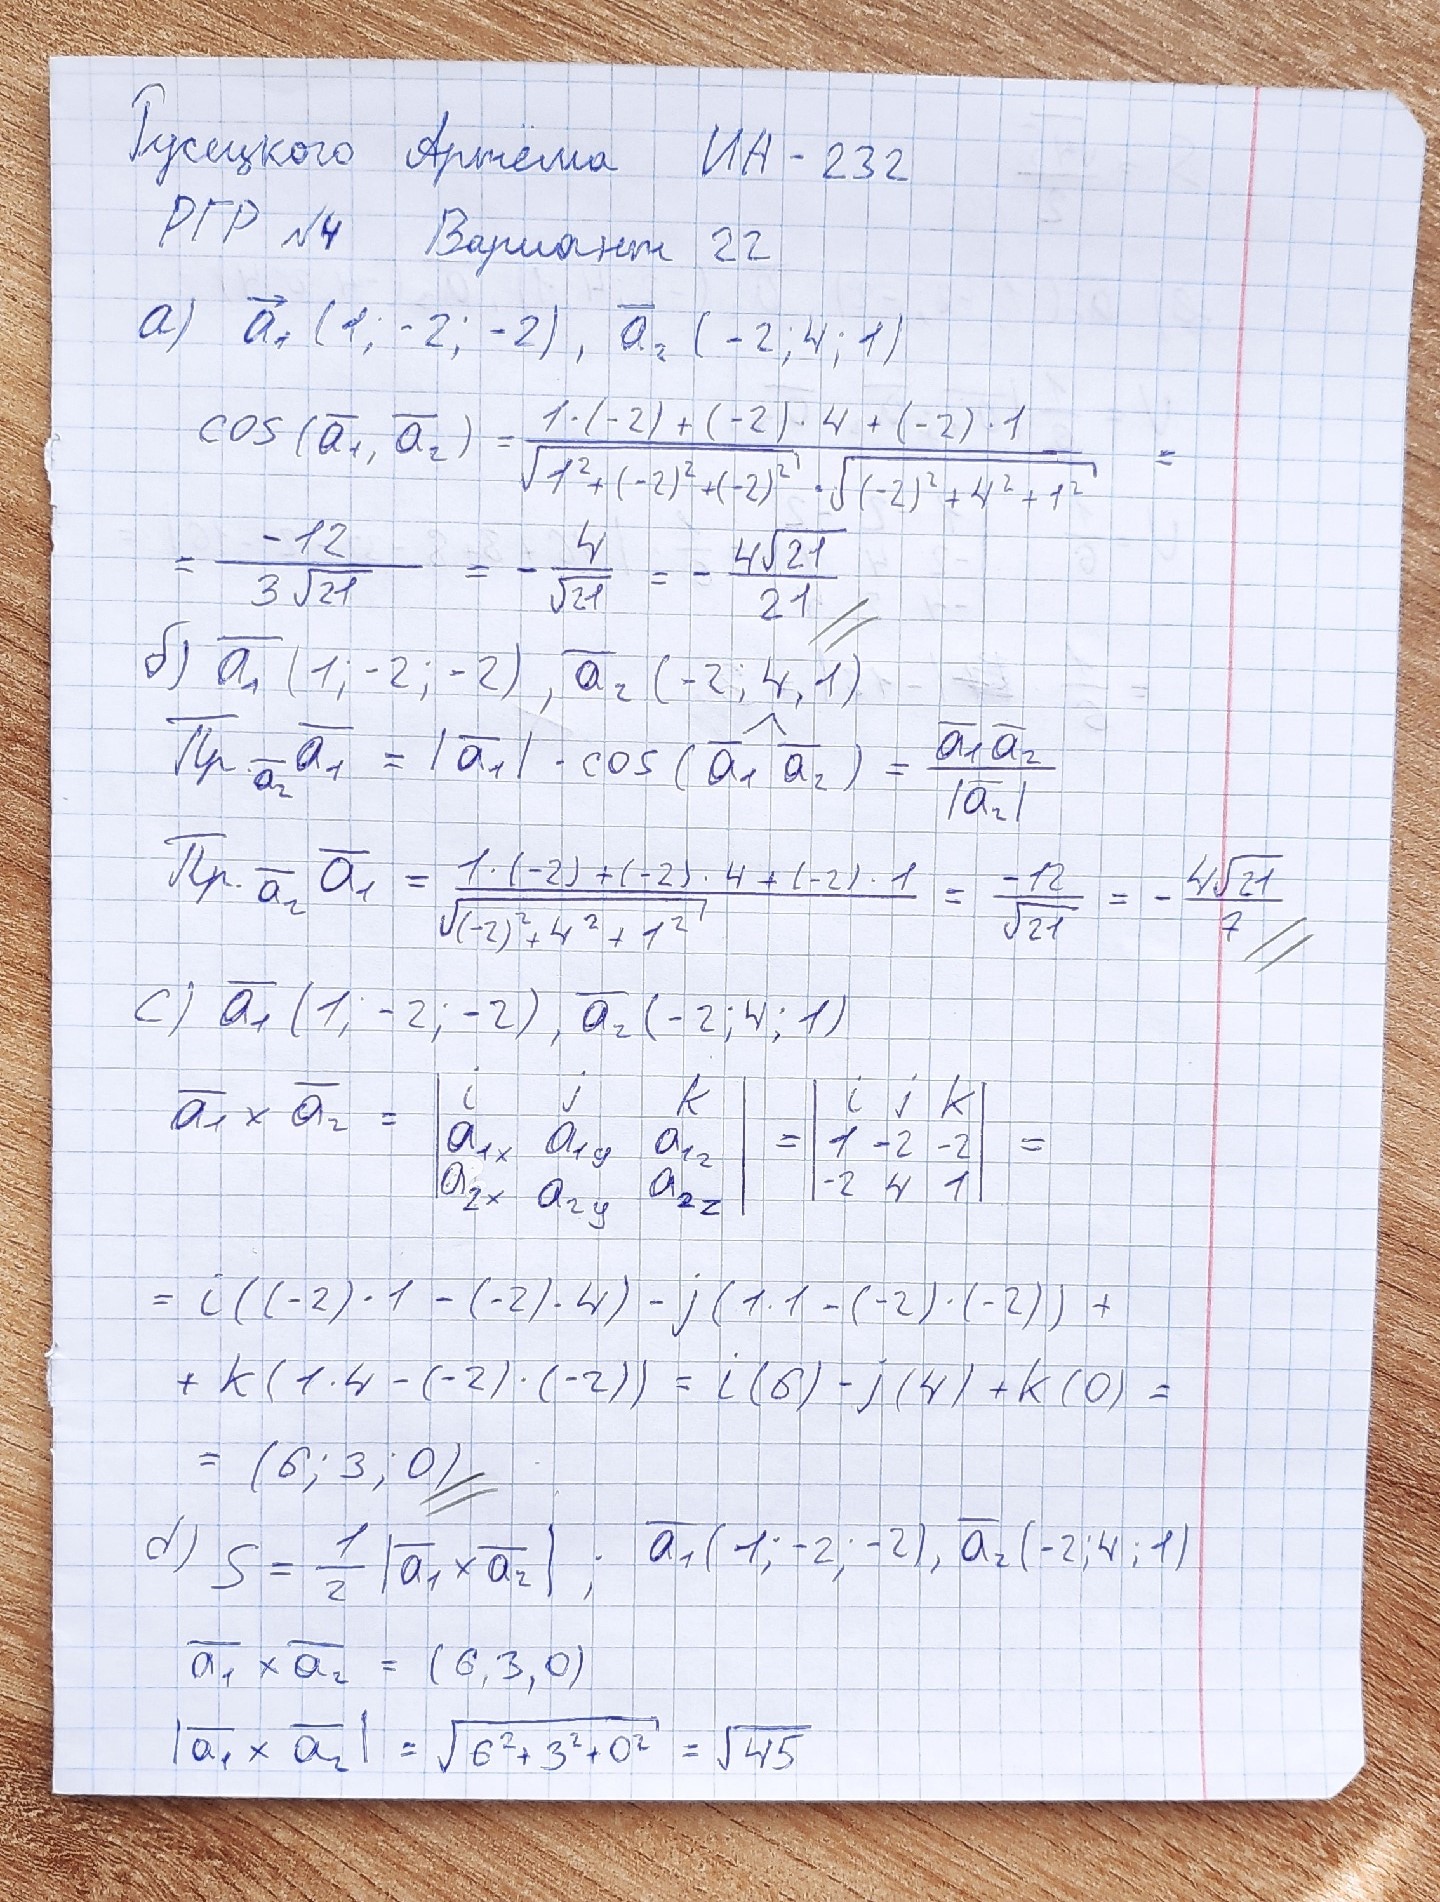 Гусецкого Артёма ИА-232
РГР №4 Вариант 22
а) a₁ (1; -2; -2), a₂ (-2; 4; 1)
cos(a₁, a₂) = (1·(-2) + (-2)·4 + (-2)·1) / (√(1² + (-2)² + (-2)²) · √((-2)² + 4² + 1²)) =
= -12 / (3√21) = - 4/√21 = - 4√21/21
б) a₁ (1; -2; -2), a₂ (-2; 4, 1)
Пр. a₂ a₁ = |a₁| · cos(a₁ ^ a₂) = a₁a₂ / |a₂|
Пр. a₂ a₁ = (1·(-2) + (-2)·4 + (-2)·1) / √((-2)² + 4² + 1²) = -12/√21 = - 4√21/7
c) a₁ (1; -2; -2), a₂ (-2; 4; 1)
a₁ × a₂ = | i j k | = | i j k | =
| a₁x a₁y a₁z | | 1 -2 -2 |
| a₂x a₂y a₂z | | -2 4 1 |
= i((-2)·1 - (-2)·4) - j(1·1 - (-2)·(-2)) +
+ k(1·4 - (-2)·(-2)) = i(6) - j(4) + k(0) =
= (6; 3; 0)
d) S = 1/2 |a₁ × a₂| ; a₁ (1; -2; -2), a₂ (-2; 4; 1)
a₁ × a₂ = (6, 3, 0)
|a₁ × a₂| = √(6² + 3² + 0²) = √45